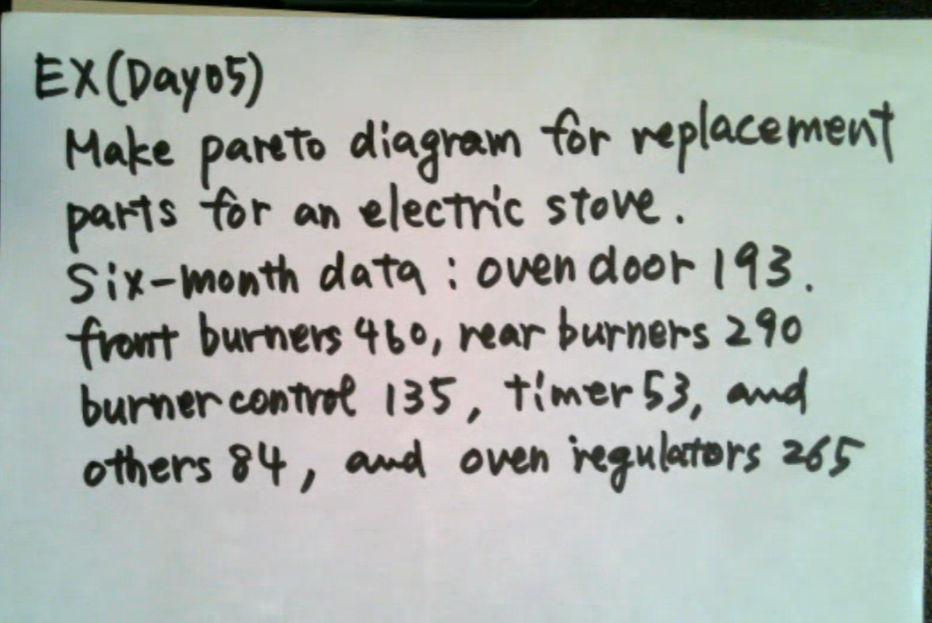 EX(Day05)
Make pareto diagram for replacement
parts for an electric stove.
Six-month data : oven door 193.
front burners 460, rear burners 290
burner control 135, timer 53, and
others 84, and oven regulators 265